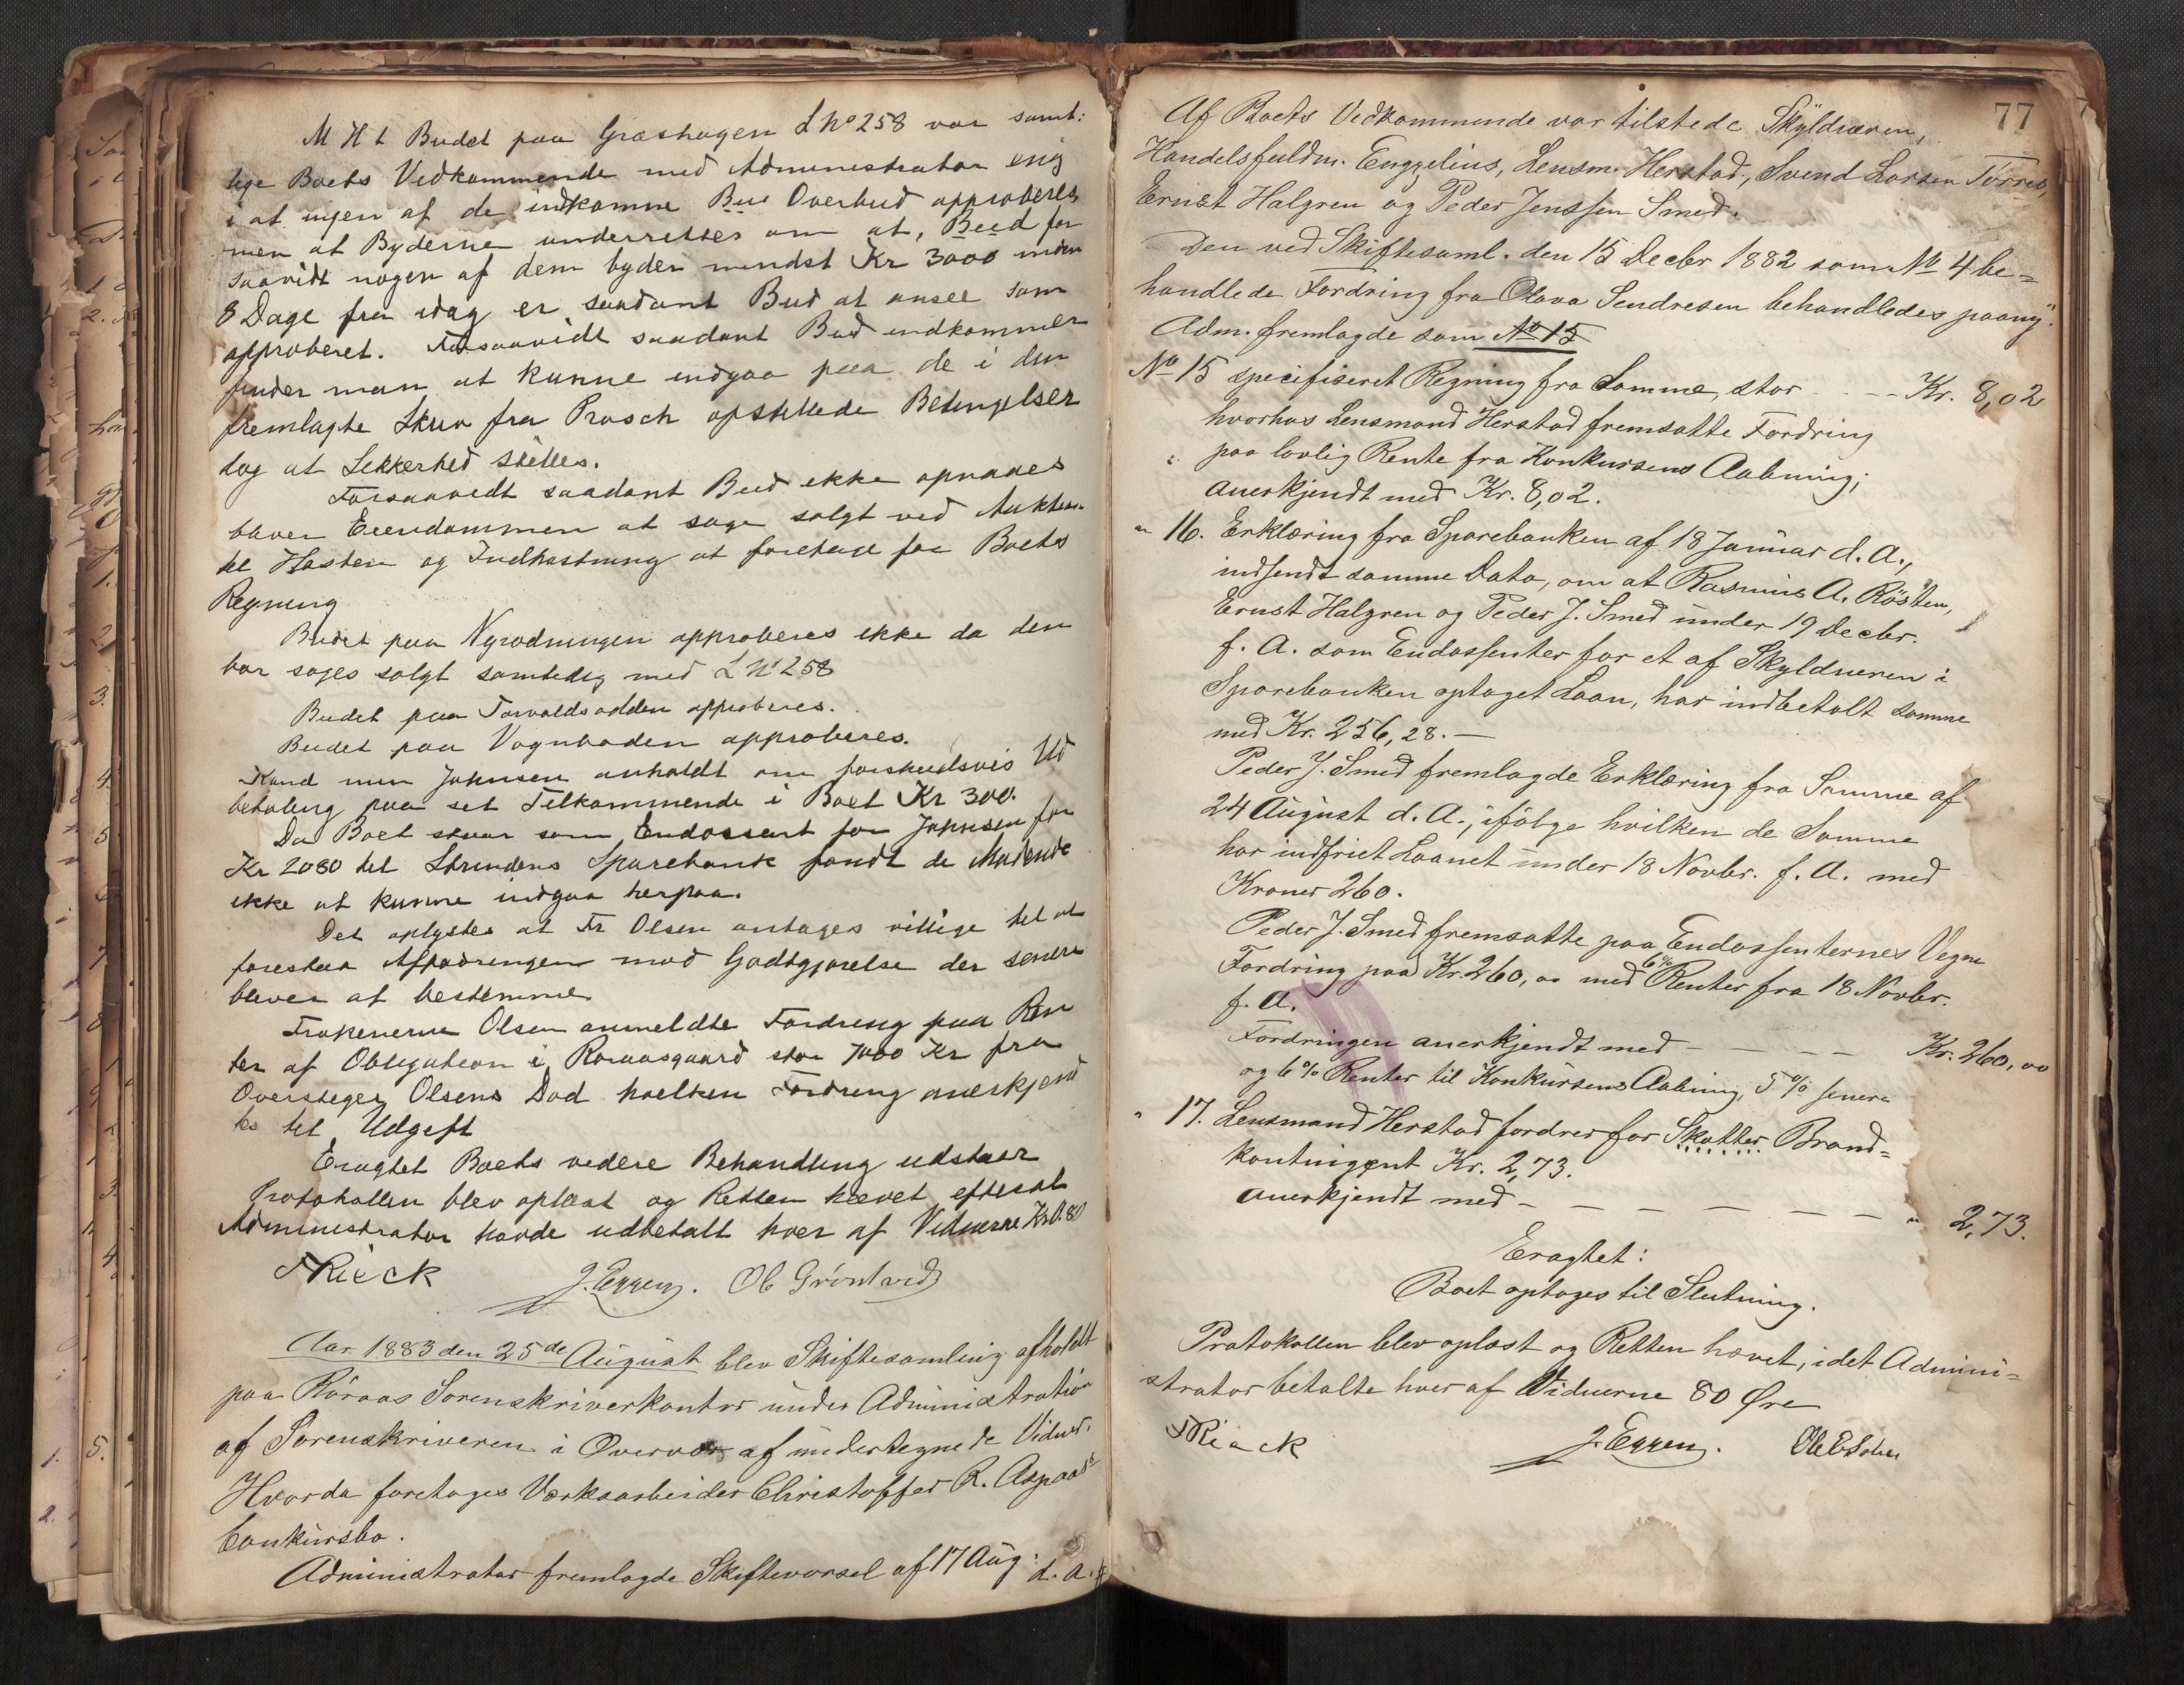 M H t Budet paa Græshagen L No 258 var samt:
lige Boets Vedkommende med Administrator enig
i at ingen af de indkomne Bud Overbud approberes,
men at Byderne underrettes om at, Beed for
saavidt nogen af dem byder mindst Kr 3000 inden
8 Dage fra idag er saadant Bud at ansee som
approberet. Forsaavidt saadant Bud indkommer
finder man at kunne indgaa paa de i den
fremlagte Skriv fra Prosch opstillede Betingelser
dog at Sekkerhed stilles.
Forsaavidt saadant Bud ikke opnaaes
bliver Eiendommen at søge solgt ved Auktion
til Høsten og Indhøstning at foretage for Boets
Regning
Budet paa Nyrødningen approberes ikke da den
bør søges solgt samtidig med L No 258
Budet paa Torvaldsodden approberes.
Budet paa Vognboden approberes.
Kand min Johnsen anholdt om forskudsvis Ud
betaling paa sit Tilkommende i Boet Kr 300.
Da Boet staar som Endossent for Johnsen for
Kr 2080 til Strindens Sparebank fandt de Mødende
ikke at kunne indgaa herpaa.
Det oplystes at Fr Olsen antages villige til at
forestaa Affodringen mod Godtgjørelse der senere
bliver at bestemme
Frøkenerne Olsen anmeldte Fordring paa Ren
ter af Obligation i Roraasgaard stor 7000 Kr fra
Oversteger Olsens Død hvilken Fordring anerkjend
tes til Udgift
Eragtet Boets videre Behandling udstaar
Protokollen blev oplæst og Retten hævet efterat
Administrator havde udbetalt hver af Vidnerne Kr 0.80
FRieck J. Eggen. Ol Grönlund
Aar 1883 den 25de August blev Skiftesamling afholdt
paa Röraas Sorenskriverkontor under Administration
af Sorenskriveren i Overvær af undertegnede Vidner.
Hvorda foretoges Værksarbeider Christoffer R. Aspaas's
Conkursbo.
Administrator fremlagde Skiftevarsel af 17 Aug: d. A.
77
Af Boets Vedkommende var tilstede Skyldneren,
Handelsfuldm. Engzelius, Lensm. Herstad, Svend Larsen Torres,
Ernst Halgren og Peder Jenssen Smed.
Den ved Skiftesaml. den 15 Decbr 1882 som No 4 be=
handlede Fordring fra Olava Sendresen behandledes paany.
Adm. fremlagde som No 15
No 15 specifiseret Regning fra Samme, stor - - - Kr. 8,02
hvorhos Lensmand Herstad fremsatte Fordring
paa lovlig Rente fra Konkursens Aabning;
anerkjendt med Kr. 8,02.
" 16. Erklæring fra Sparebanken af 18 Januar d. A.,
indsendt samme Dato, om at Rasmus A. Rösten,
Ernst Halgren og Peder J. Smed under 19 Decbr.
f. A. som Endossenter for et af Skyldneren i
Sparebanken optaget Laan, har indbetalt samme
med Kr. 256,28. —
Peder J. Smed fremlagde Erklæring fra Samme af
24 August d. A., ifölge hvilken de Samme
har indfriet Laanet under 18 Novbr. f. A. med
Kroner 260.
Peder J. Smed fremsatte paa Endossenternes Vegne
Fordring paa Kr. 260,00 med 6% Renter fra 18 Novbr.
f. A.
Fordringen anerkjendt med - - - - Kr. 260,00
og 6% Renter til Konkursens Aabning, 5% senere
" 17. Lensmand Herstad fordrer for Skatter Brand=
kontingent Kr. 2,73.
anerkjendt med - - - - - - - " 2,73.
Eragtet:
Boet optages til Slutning.
Protokollen blev oplæst og Retten hævet, idet Admini=
strator betalte hver af Vidnerne 80 Øre
FRieck J. Eggen.